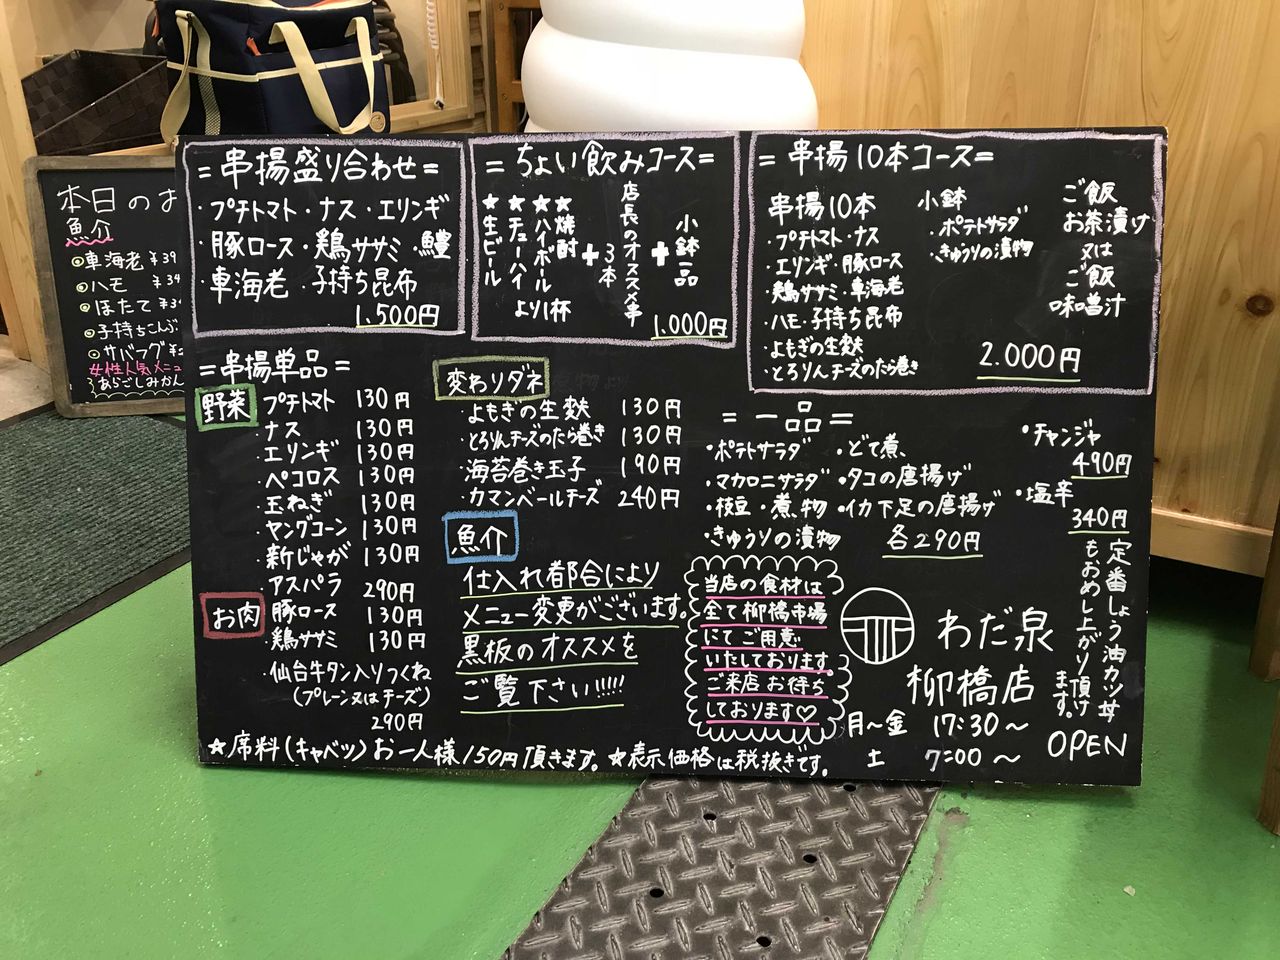 本日のお
魚介
◎車海老 ¥39
◎ハモ ¥34
◎ほたて
◎子持ちこんぶ
◎サバフグ
女性人気メニュ
あらごしみかん
=串揚盛り合わせ=
・プチトマト・ナス・エリンギ
・豚ロース・鶏ササミ・鱧
・車海老・子持ち昆布
1.500円
=ちょい飲みコース=
★生ビール
★チューハイ
★ハイボール
★焼酎
より1杯
+
店長のオススメ串
3本
+
小鉢一品
1.000円
=串揚10本コース=
串揚10本
・プチトマト・ナス
・エリンギ・豚ロース
・鶏ササミ・車海老
・ハモ・子持ち昆布
・よもぎの生麩
・とろりんチーズのたら巻き
小鉢
・ポテトサラダ
・きゅうりの漬物
ご飯
お茶漬け
又は
ご飯
味噌汁
2.000円
=串揚単品=
野菜
・プチトマト 130円
・ナス 130円
・エリンギ 130円
・ペコロス 130円
・玉ねぎ 130円
・ヤングコーン 130円
・新じゃが 130円
・アスパラ 290円
お肉
・豚ロース 130円
・鶏ササミ 130円
・仙台牛タン入りつくね
(プレーン又はチーズ)
290円
変わりダネ
・よもぎの生麩 130円
・とろりんチーズのたら巻き 130円
・海苔巻き玉子 190円
・カマンベールチーズ 240円
魚介
仕入れ都合により
メニュー変更がございます。
黒板のオススメを
ご覧下さい!!!!!
=一品=
・ポテトサラダ ・どて煮
・マカロニサラダ ・タコの唐揚げ
・枝豆・煮物 ・イカ下足の唐揚げ
・きゅうりの漬物 各290円
・チャンジャ
490円
・塩辛
340円
定番しょう油カツ丼
もおめし上がり頂け
ます。
当店の食材は
全て柳橋市場
にてご用意
いたしております。
ご来店お待ち
しております♡
わだ泉
柳橋店
月~金 17:30~
土 7:00~
OPEN
★席料(キャベツ)お一人様150円頂きます。★表示価格は税抜きです。